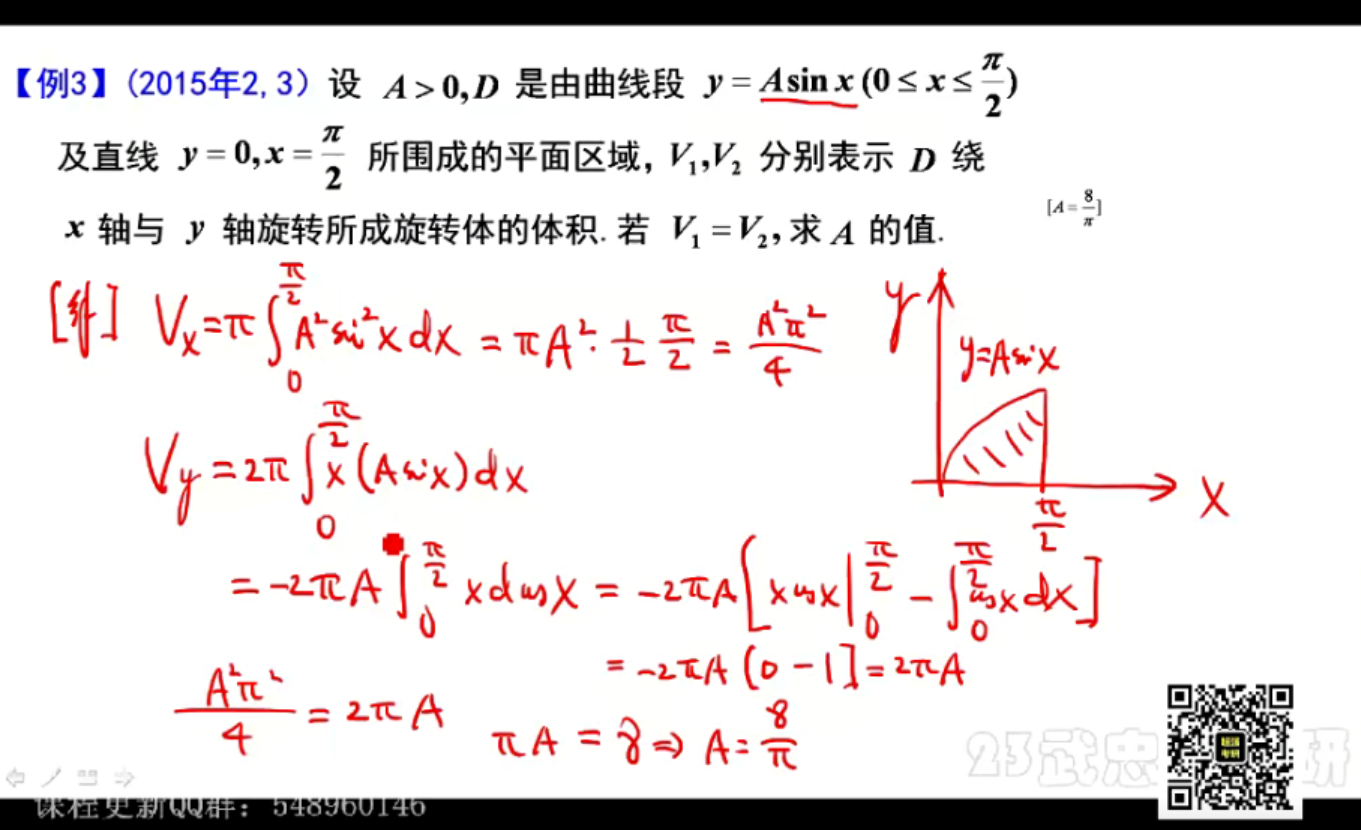 【例3】(2015年2,3) 设 A > 0, D 是由曲线段 y = A sin x (0 ≤ x ≤ π/2)
及直线 y = 0, x = π/2 所围成的平面区域, V₁,V₂ 分别表示 D 绕
x 轴与 y 轴旋转所成旋转体的体积. 若 V₁ = V₂, 求 A 的值.
[A = 8/π]
[解] Vx = π∫₀^(π/2) A² sin²x dx = πA² · 1/2 π/2 = A²π²/4
y
y=A sin x
Vy = 2π∫₀^(π/2) x(A sin x)dx
x
π/2
= -2πA ∫₀^(π/2) x d cos x = -2πA [x cos x |₀^(π/2) - ∫₀^(π/2) cos x dx]
= -2πA (0 - 1] = 2πA
A²π²/4 = 2πA
πA = 8 ⇒ A = 8/π
23武忠 研
课程更新QQ群: 548960146